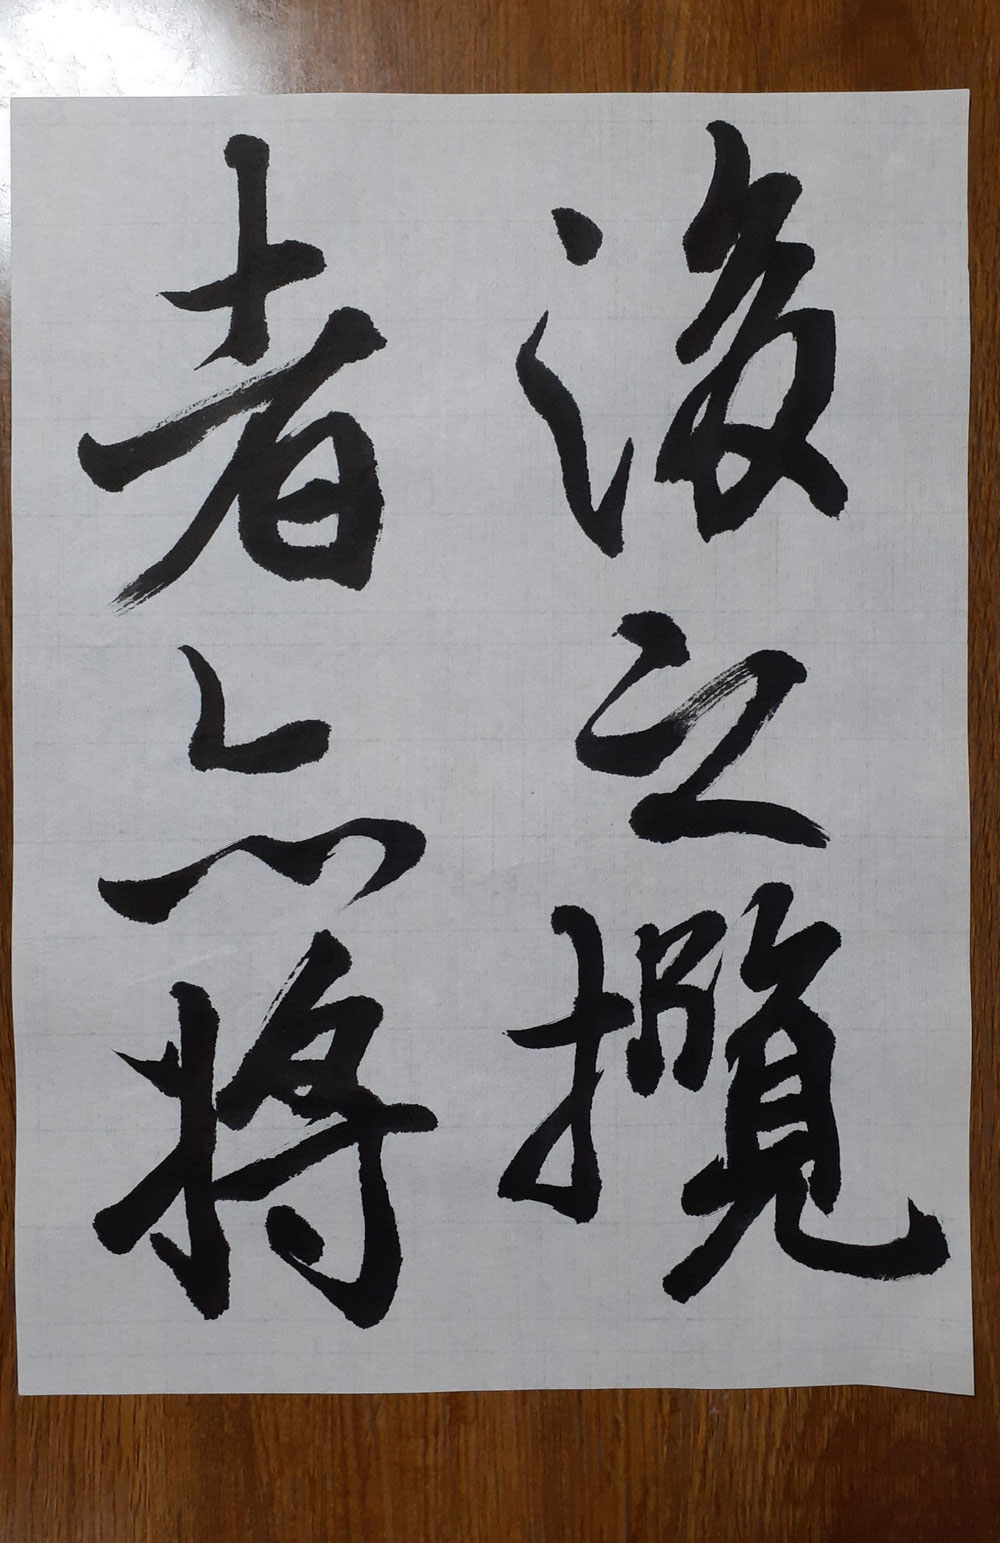 後之攬
者亦將